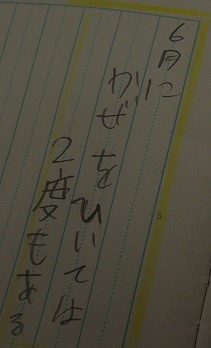 6月に
かぜをひいては
2度もある